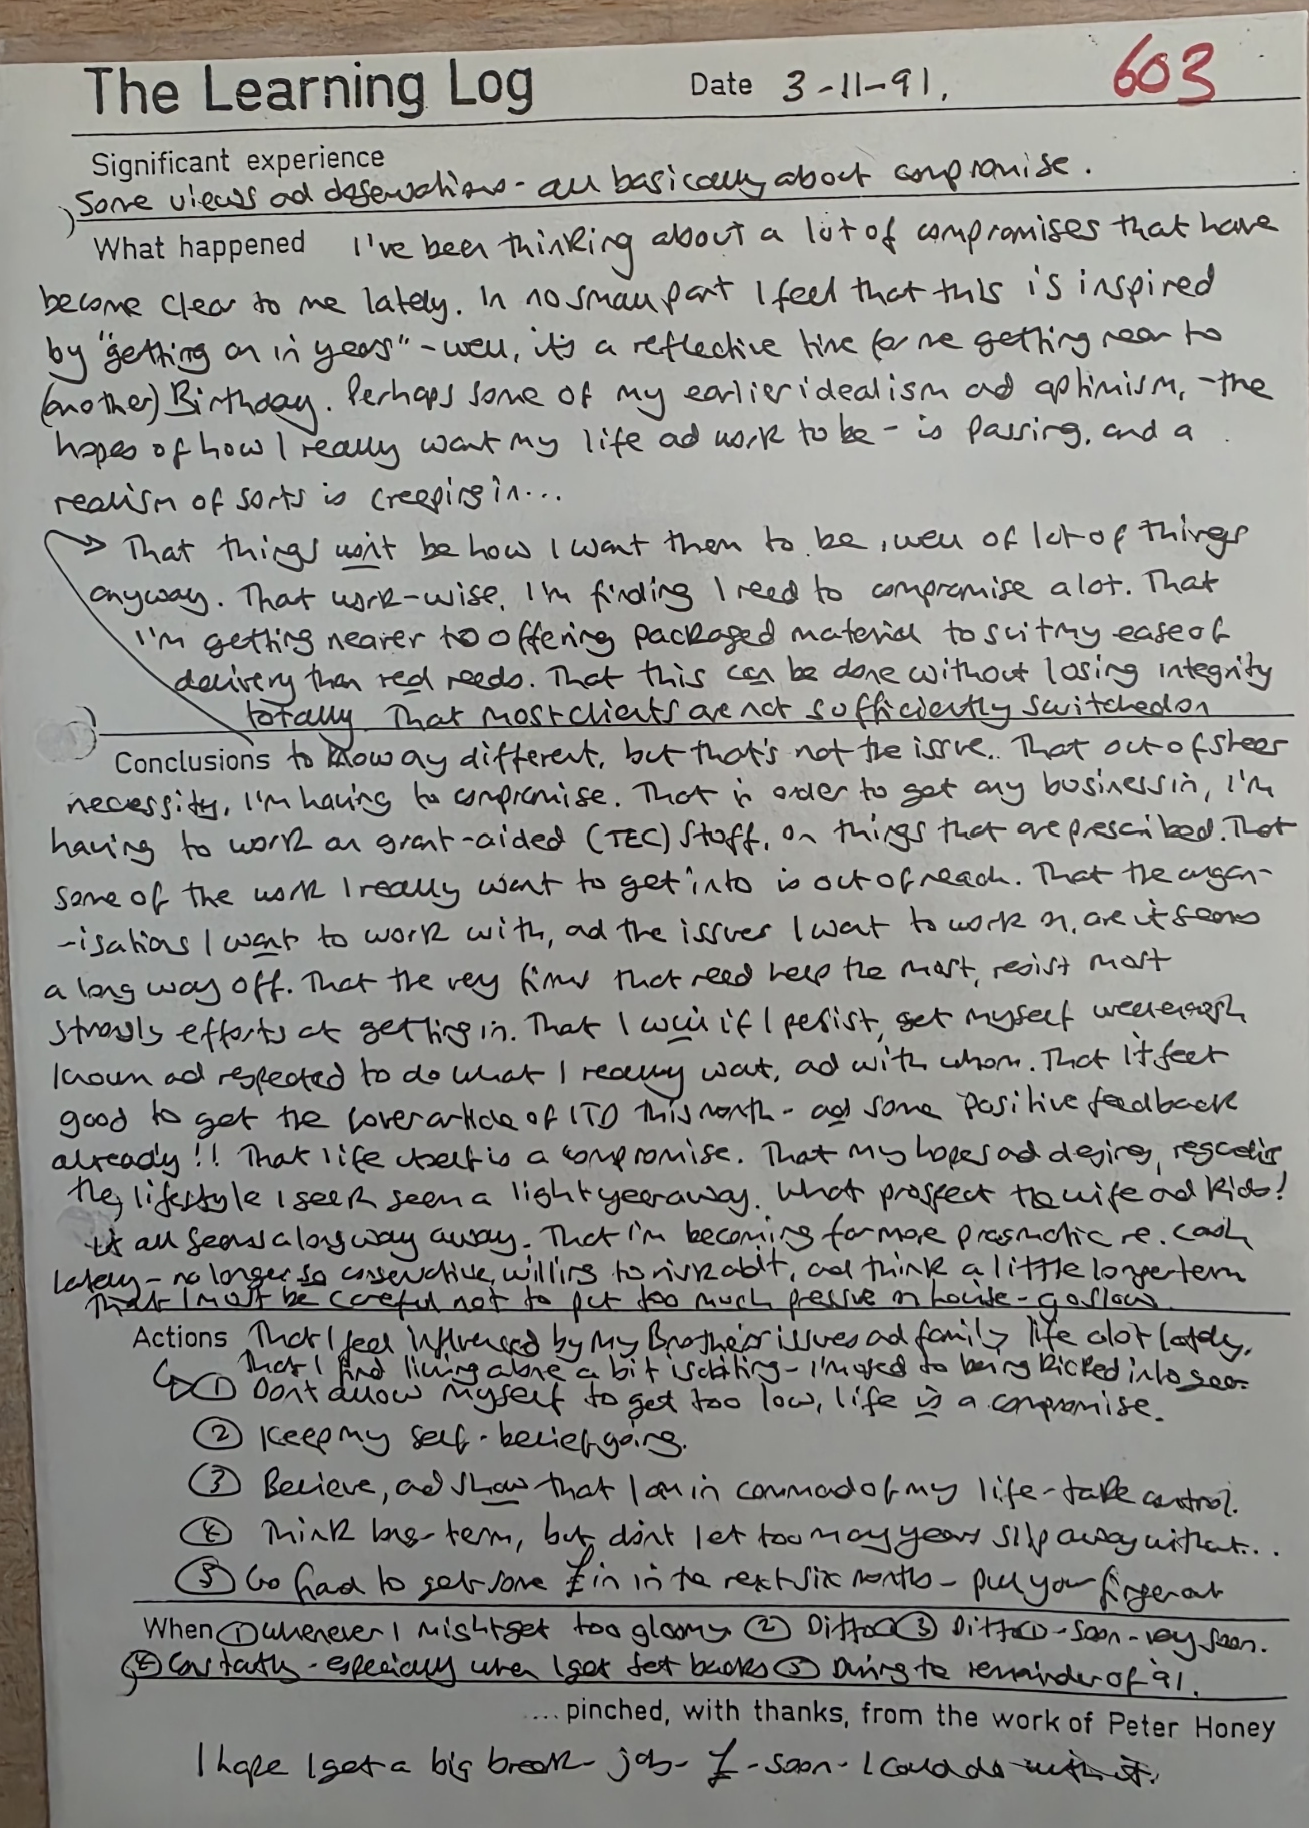 The Learning Log Date 3-11-91. 603
Significant experience
Some views ad observations - all basically about compromise.
What happened I've been thinking about a lot of compromises that have
become clear to me lately. In no small part I feel that this is inspired
by "getting on in years" - well, it's a reflective time for me getting near to
(another) Birthday. Perhaps some of my earlier idealism ad optimism, - the
hopes of how I really want my life ad work to be - is passing, and a
realism of sorts is creeping in...
→ That things won't be how I want them to be, well of lot of things
anyway. That work-wise, I'm finding I need to compromise a lot. That
I'm getting nearer to offering packaged material to suit my ease of
delivery than real needs. That this can be done without losing integrity
totally. That most clients are not sufficiently switched on
Conclusions to know any different, but that's not the issue. That out of sheer
necessity, I'm having to compromise. That in order to get any business in, I'm
having to work on grant-aided (TEC) stuff, on things that are prescribed. That
some of the work I really want to get into is out of reach. That the organ-
-isations I want to work with, ad the issues I want to work on, are it seems
a long way off. That the very firms that need help the most, resist most
strongly efforts at getting in. That I will if I persist, get myself well enough
known ad respected to do what I really want, ad with whom. That it feels
good to get the cover article of ITD this month - ad some positive feedback
already!! That life itself is a compromise. That my hopes ad desires, regarding
the lifestyle I seek seem a light year away. What prospect the wife ad kids!
It all seems a long way away. That I'm becoming far more pragmatic re. cash
lately - no longer so conservative, willing to risk a bit, ad think a little longer term
That I must be careful not to put too much pressure on house - go slow.
Actions That I feel influenced by my Brother's issues ad family life alot lately.
That I find living alone a bit isolating - I'm used to being kicked into gear.
① Don't allow myself to get too low, life is a compromise.
② Keep my self-belief going.
③ Believe, ad show that I am in command of my life - take control.
④ Think long-term, but don't let too many years slip away without...
⑤ Go hard to get some £ in in the next six months - pull your finger out
When ① whenever I might get too gloomy ② Ditto ① ③ Ditto ① - soon - very soon.
④ Constantly - especially when I get set backs ⑤ During the remainder of '91.
...pinched, with thanks, from the work of Peter Honey
I hope I get a big break - job - £ - soon - I could do with it.